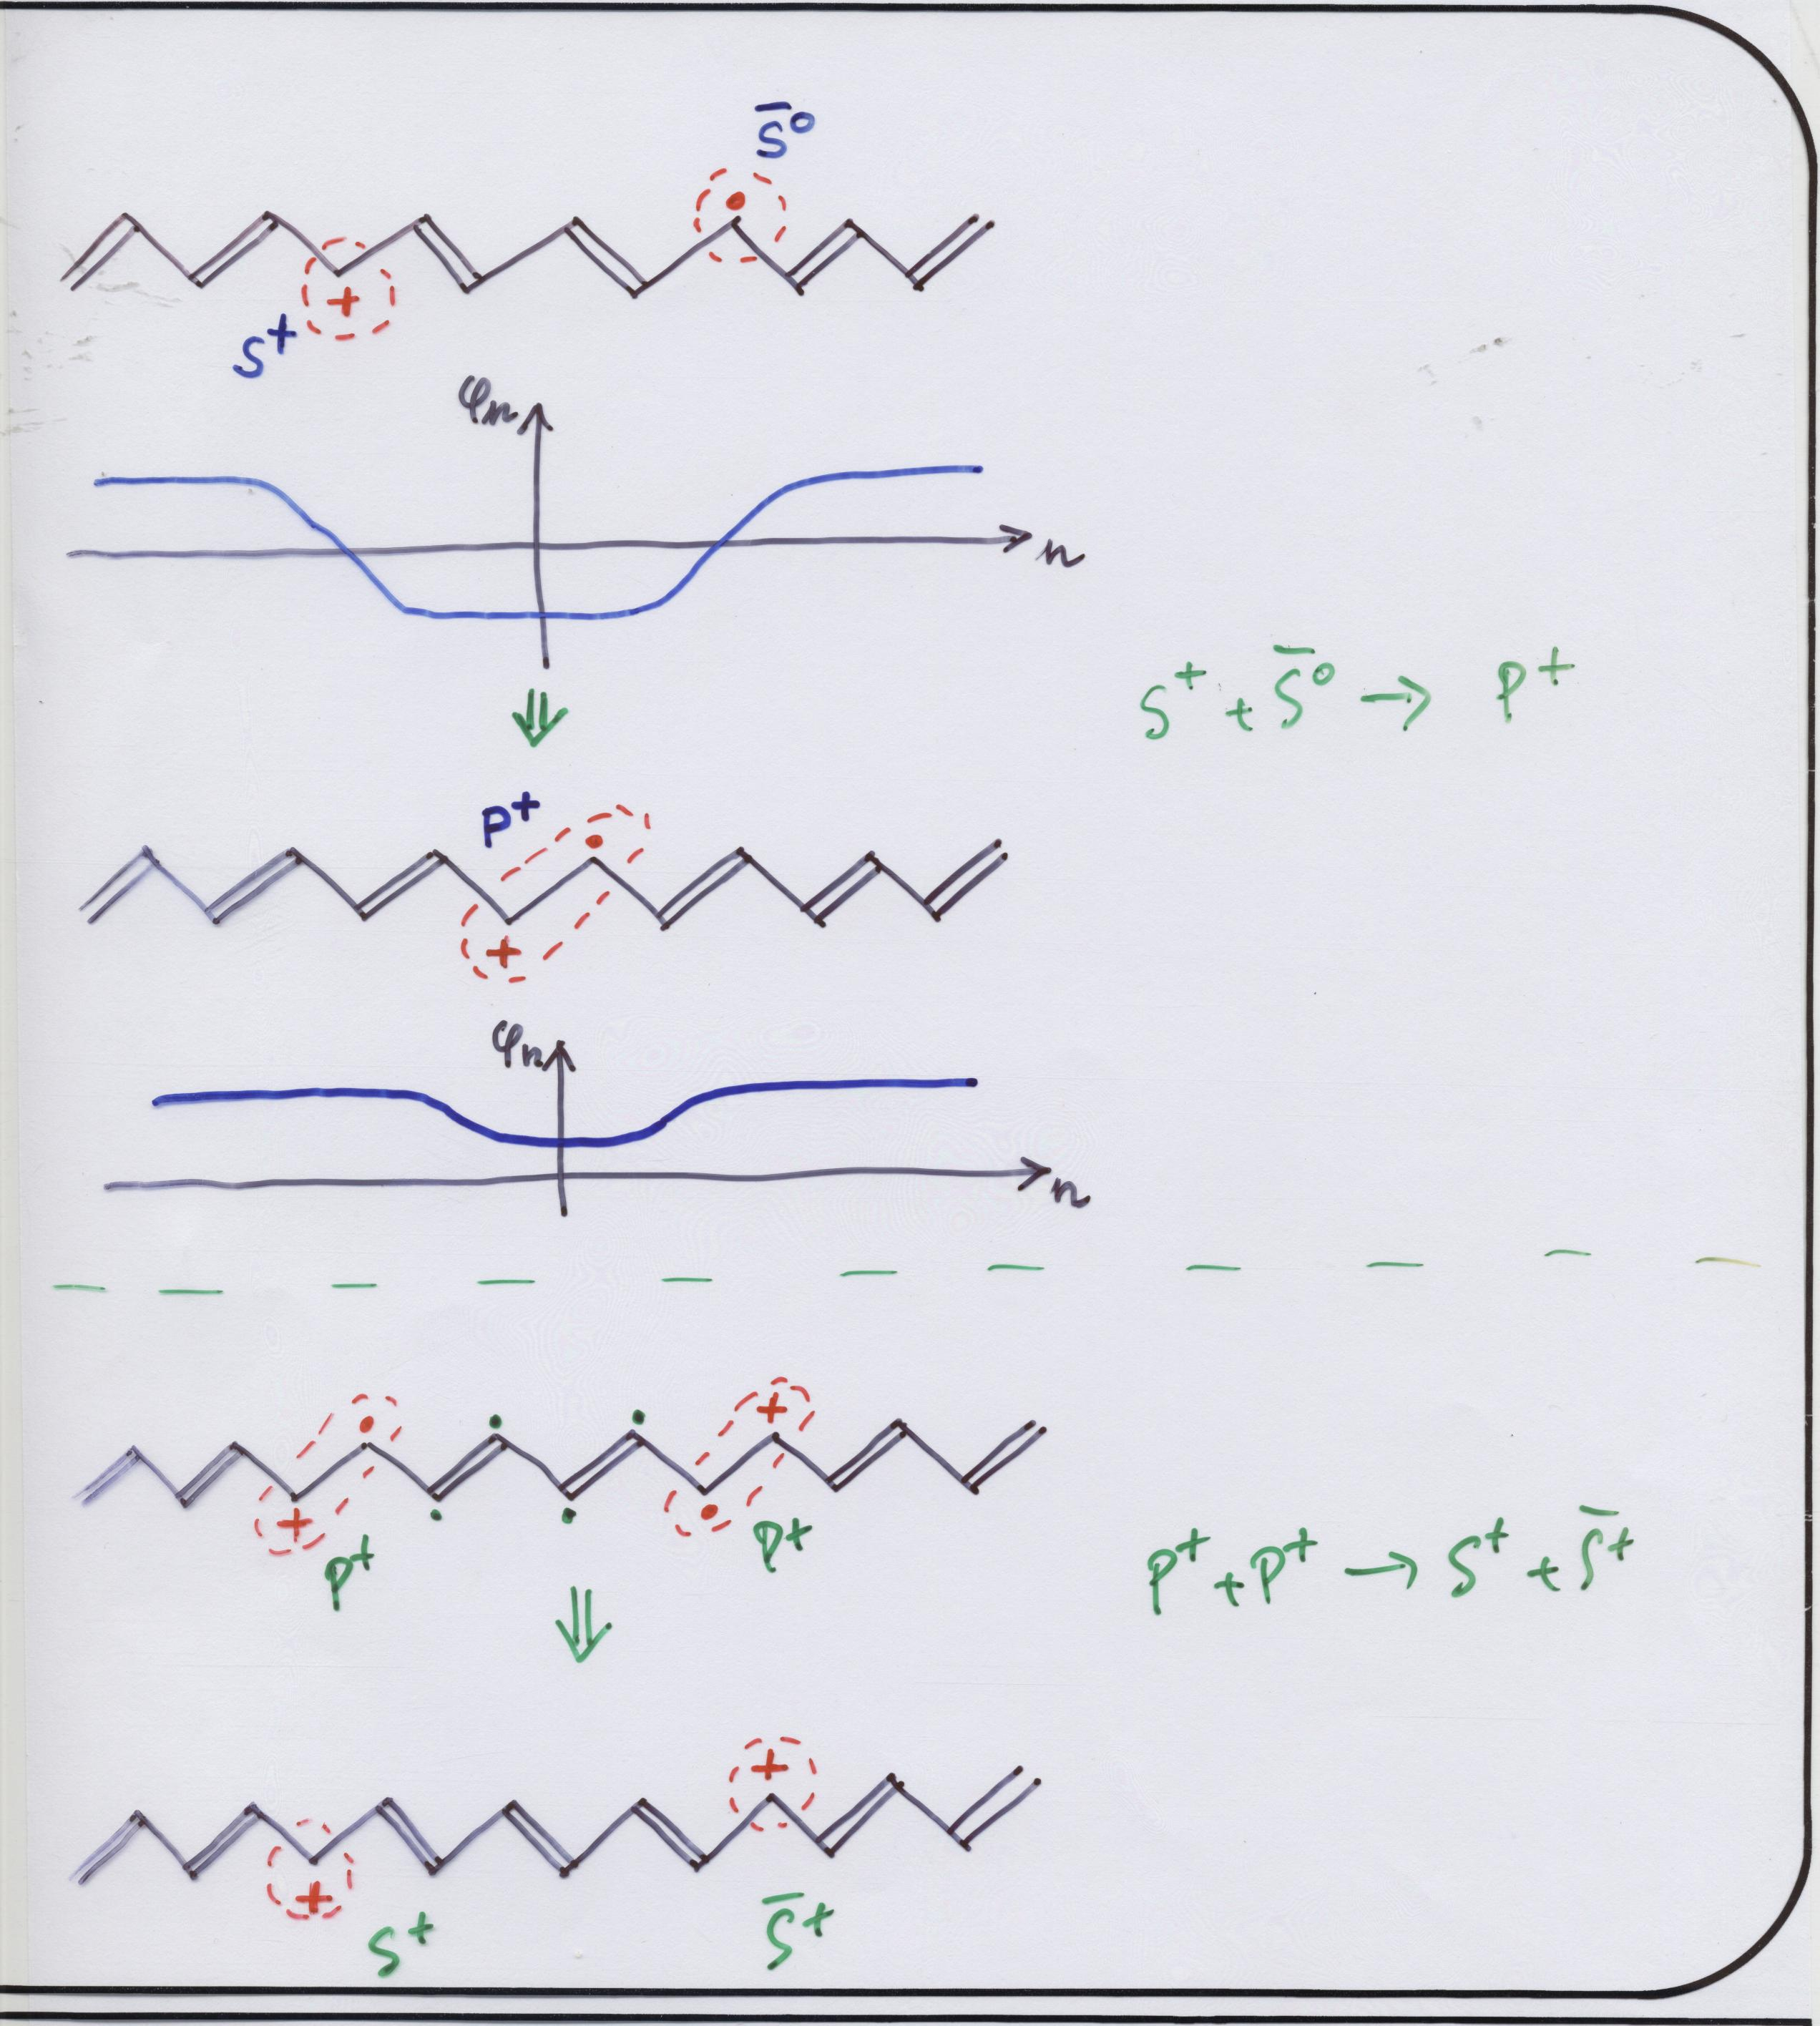 S̄⁰
+
S⁺
φn
n
S⁺ + S̄⁰ → P⁺
P⁺
+
φn
n
+
+
P⁺
P⁺
P⁺ + P⁺ → S⁺ + S̄⁺
+
+
S⁺
S̄⁺